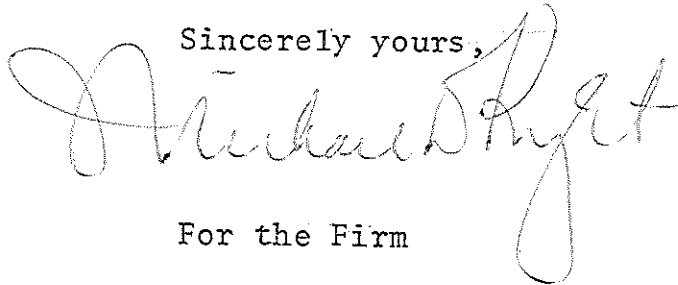 Sincerely yours,
Michael D
For the Firm